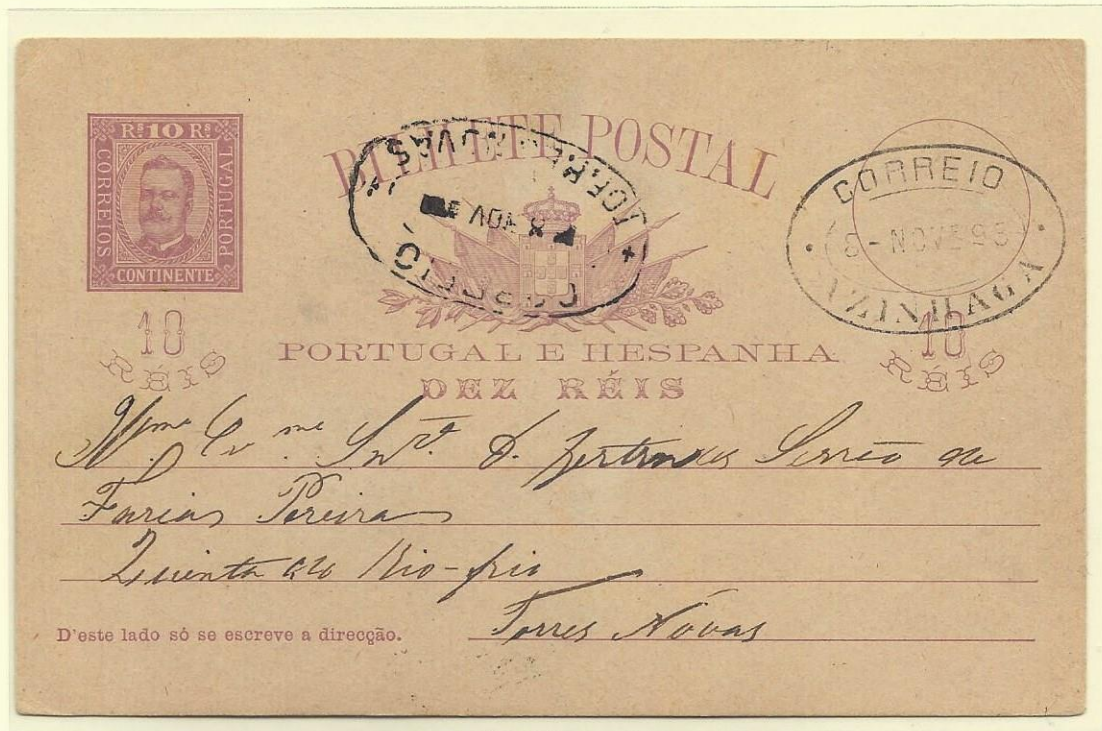 R.s 10 R.s
CORREIOS
PORTUGAL
CONTINENTE
BILHETE POSTAL
CORREIO
TORRES NOVAS
8 NOV
CORREIO
8 - NOVE 93
AZINHAGA
10
RÉIS
10
RÉIS
PORTUGAL E HESPANHA
DEZ RÉIS
Illma Exma Snra D. Gertrudes Serrão de
Farias Pereira
Quinta do Rio-frio
Torres Nóvas
D'este lado só se escreve a direcção.